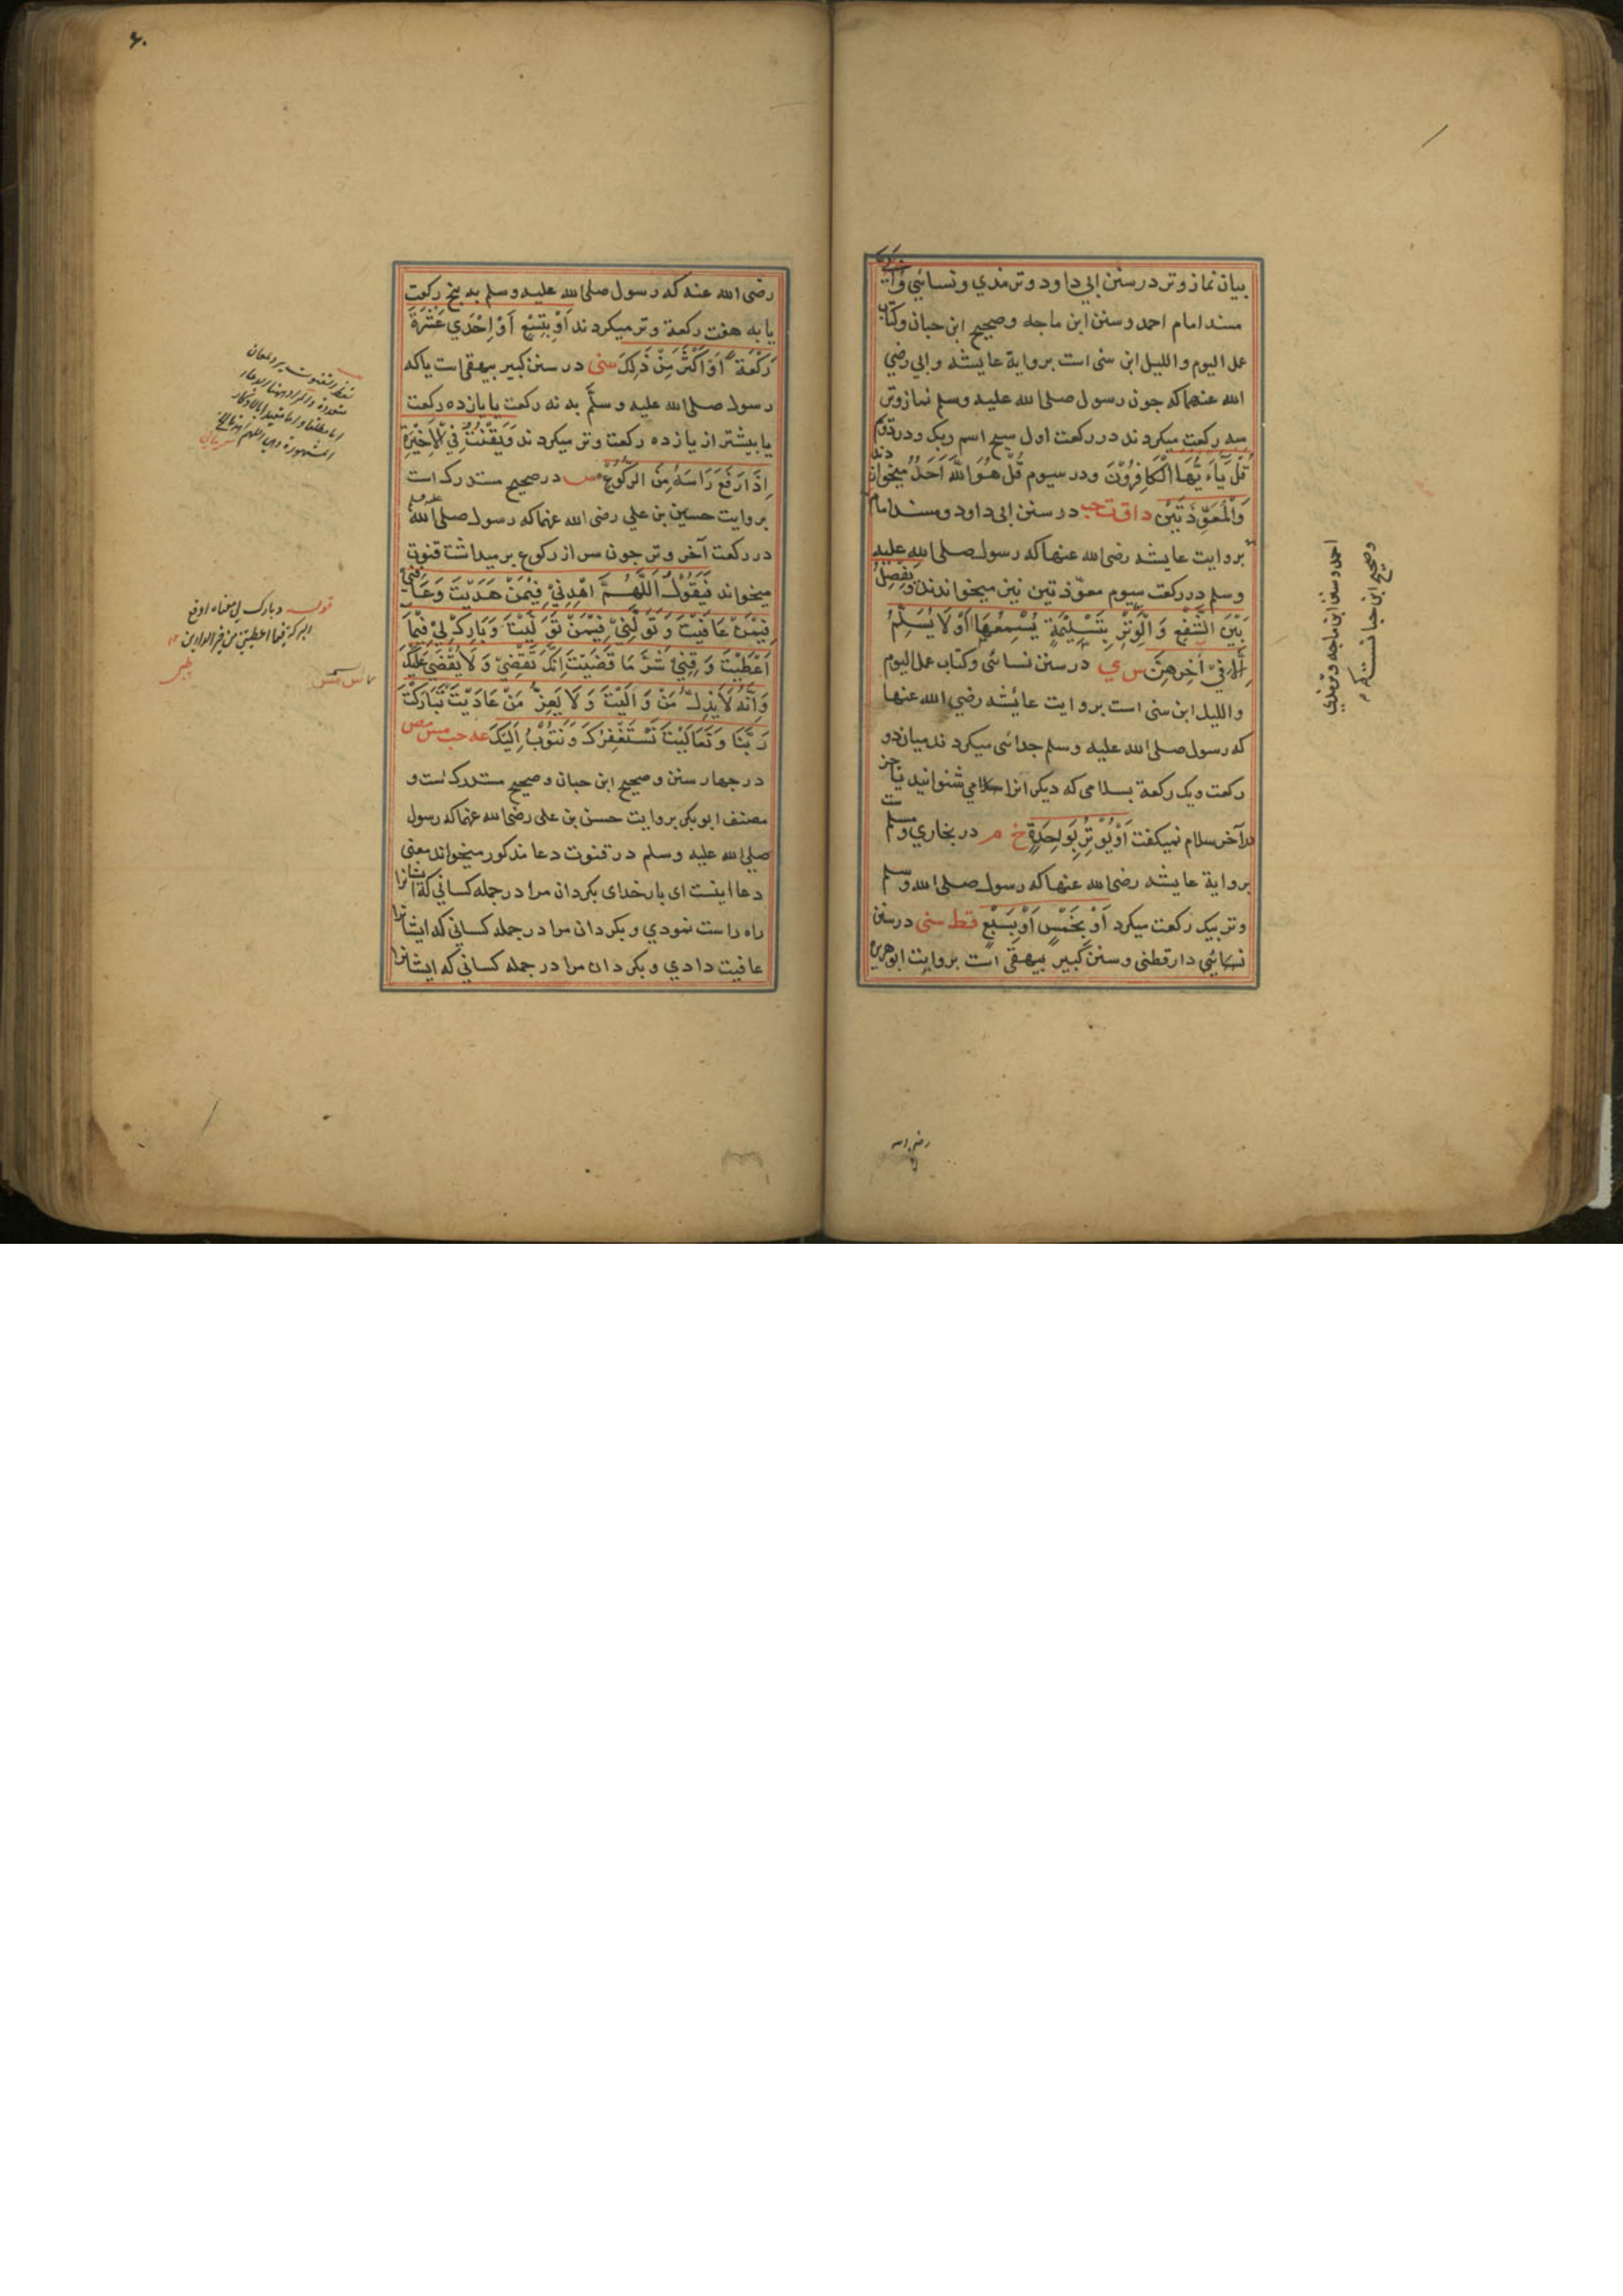 بیان نماز وتر در سنن ابی داود و ترمذي و نسائي
مسند امام احمد و سنن ابن ماجه و صحیح ابن حبان و کتاب
عمل الیوم واللیل ابن سنی است بروایة عایشه و ابی رضي
الله عنهما که چون رسول صلی الله علیه وسلم نماز وتر
سه رکعت میکردند در رکعت اول سبح اسم ربک و در دوم
قُلْ یَاءَیُّهَا الْکَافِرُوْنَ و در سیوم قُلْ هُوَ اللّٰهُ اَحَدٌ میخواندند
وَالْمُعَوِّذَتَیْنِ د ا ق ت حب در سنن ابی داود و مسند امام
بروایت عایشه رضی الله عنها که رسول صلی الله علیه
وسلم در رکعت سیوم معوّذتین نیز میخواندند وَیَفْصِلُ
بَیْنَ الشَّفْعِ وَالْوِتْرِ بِتَسْلِیْمَةٍ یُسْمِعُهَا اَوْ لَا یُسَلِّمُ
اِلَّا فِیْ اٰخِرِهِنَّ س ي در سنن نسائی و کتاب عمل الیوم
واللیل ابن سنی است بروایت عائشه رضي الله عنها
که رسول صلی الله علیه وسلم جدائی میکردند میان دو
رکعت ویک رکعة بسلامی که دیکر انرا سلامی شنوانیدیا جز
در آخر سلام نمیکفت اَوْ یُوْتِرُ بِوَاحِدَةٍ خ م در بخاري و مسلم ست
بروایة عایشه رضی الله عنها که رسول صلی الله وسلم
وتر بیک رکعت میکرد اَوْ بِخَمْسٍ اَوْ بِسَبْعٍ قط سنی در سنن
نسائي دارقطنی و سنن کبیر بیهقی است بروایت ابوهریره
احمد و سنن ابن ماجه و ترمذي
وصحیح ابن حبانست
رضی الله
۶۰
رضی الله عنه که رسول صلی الله علیه وسلم به پنج رکعت
یا به هفت رکعة وتر میکردند اَوْ بِتِسْعٍ اَوْ اِحْدَي عَشْرَةَ
رَکْعَةً اَوْ اَکْثَرَ مِنْ ذٰلِکَ سنی در سنن کبیر بیهقی است یا که
رسول صلی الله علیه وسلَّم به نه رکعت یا یازده رکعت
یا بیشتر از یازده رکعت وتر میکردند وَیَقْنُتُ فِي الْاَخِیْرَةِ
اِذَا رَفَعَ رَاسَهُ مِنَ الرُّکُوْعِ مس در صحیح مستدرک است
بروایت حسین بن علي رضی الله عنهما که رسول صلی الله علیه وسلم
در رکعت آخر وتر جون سر از رکوع برمیداشت قنوت
میخواند فَیَقُوْلُ اَللّٰهُمَّ اهْدِنِيْ فِیْمَنْ هَدَیْتَ وَعَافِنِيْ
فِیْمَنْ عَافَیْتَ وَتَوَلَّنِيْ فِیْمَنْ تَوَلَّیْتَ وَبَارِکْ لِيْ فِیْمَا
اَعْطَیْتَ وَقِنِيْ شَرَّ مَا قَضَیْتَ اِنَّکَ تَقْضِيْ وَلَا یُقْضَي عَلَیْکَ
وَاَنَّهُ لَا یَذِلُّ مَنْ وَالَیْتَ وَلَا یَعِزُّ مَنْ عَادَیْتَ تَبَارَکْتَ
رَبَّنَا وَتَعَالَیْتَ نَسْتَغْفِرُکَ وَنَتُوْبُ اِلَیْکَ عه حب مس مص
در جهار سنن و صحیح ابن حبان و صحیح مستدرک است و
مصنف ابو بکر بروایت حسن بن علی رضی الله عنهما که رسول
صلي الله علیه وسلم در قنوت دعا مذکور میخواند معنی
دعا اینست ای بار خدای بکردان مرا در جمله کساني که ایشانرا
راه راست نمودي و بکردان مرا در جمله کساني که ایشانرا
عافیت دادي و بکردان مرا در جمله کساني که ایشانرا
قوله وبارک لی معناه اوقع
البرکة فیما اعطیتنی من خیر الدارین